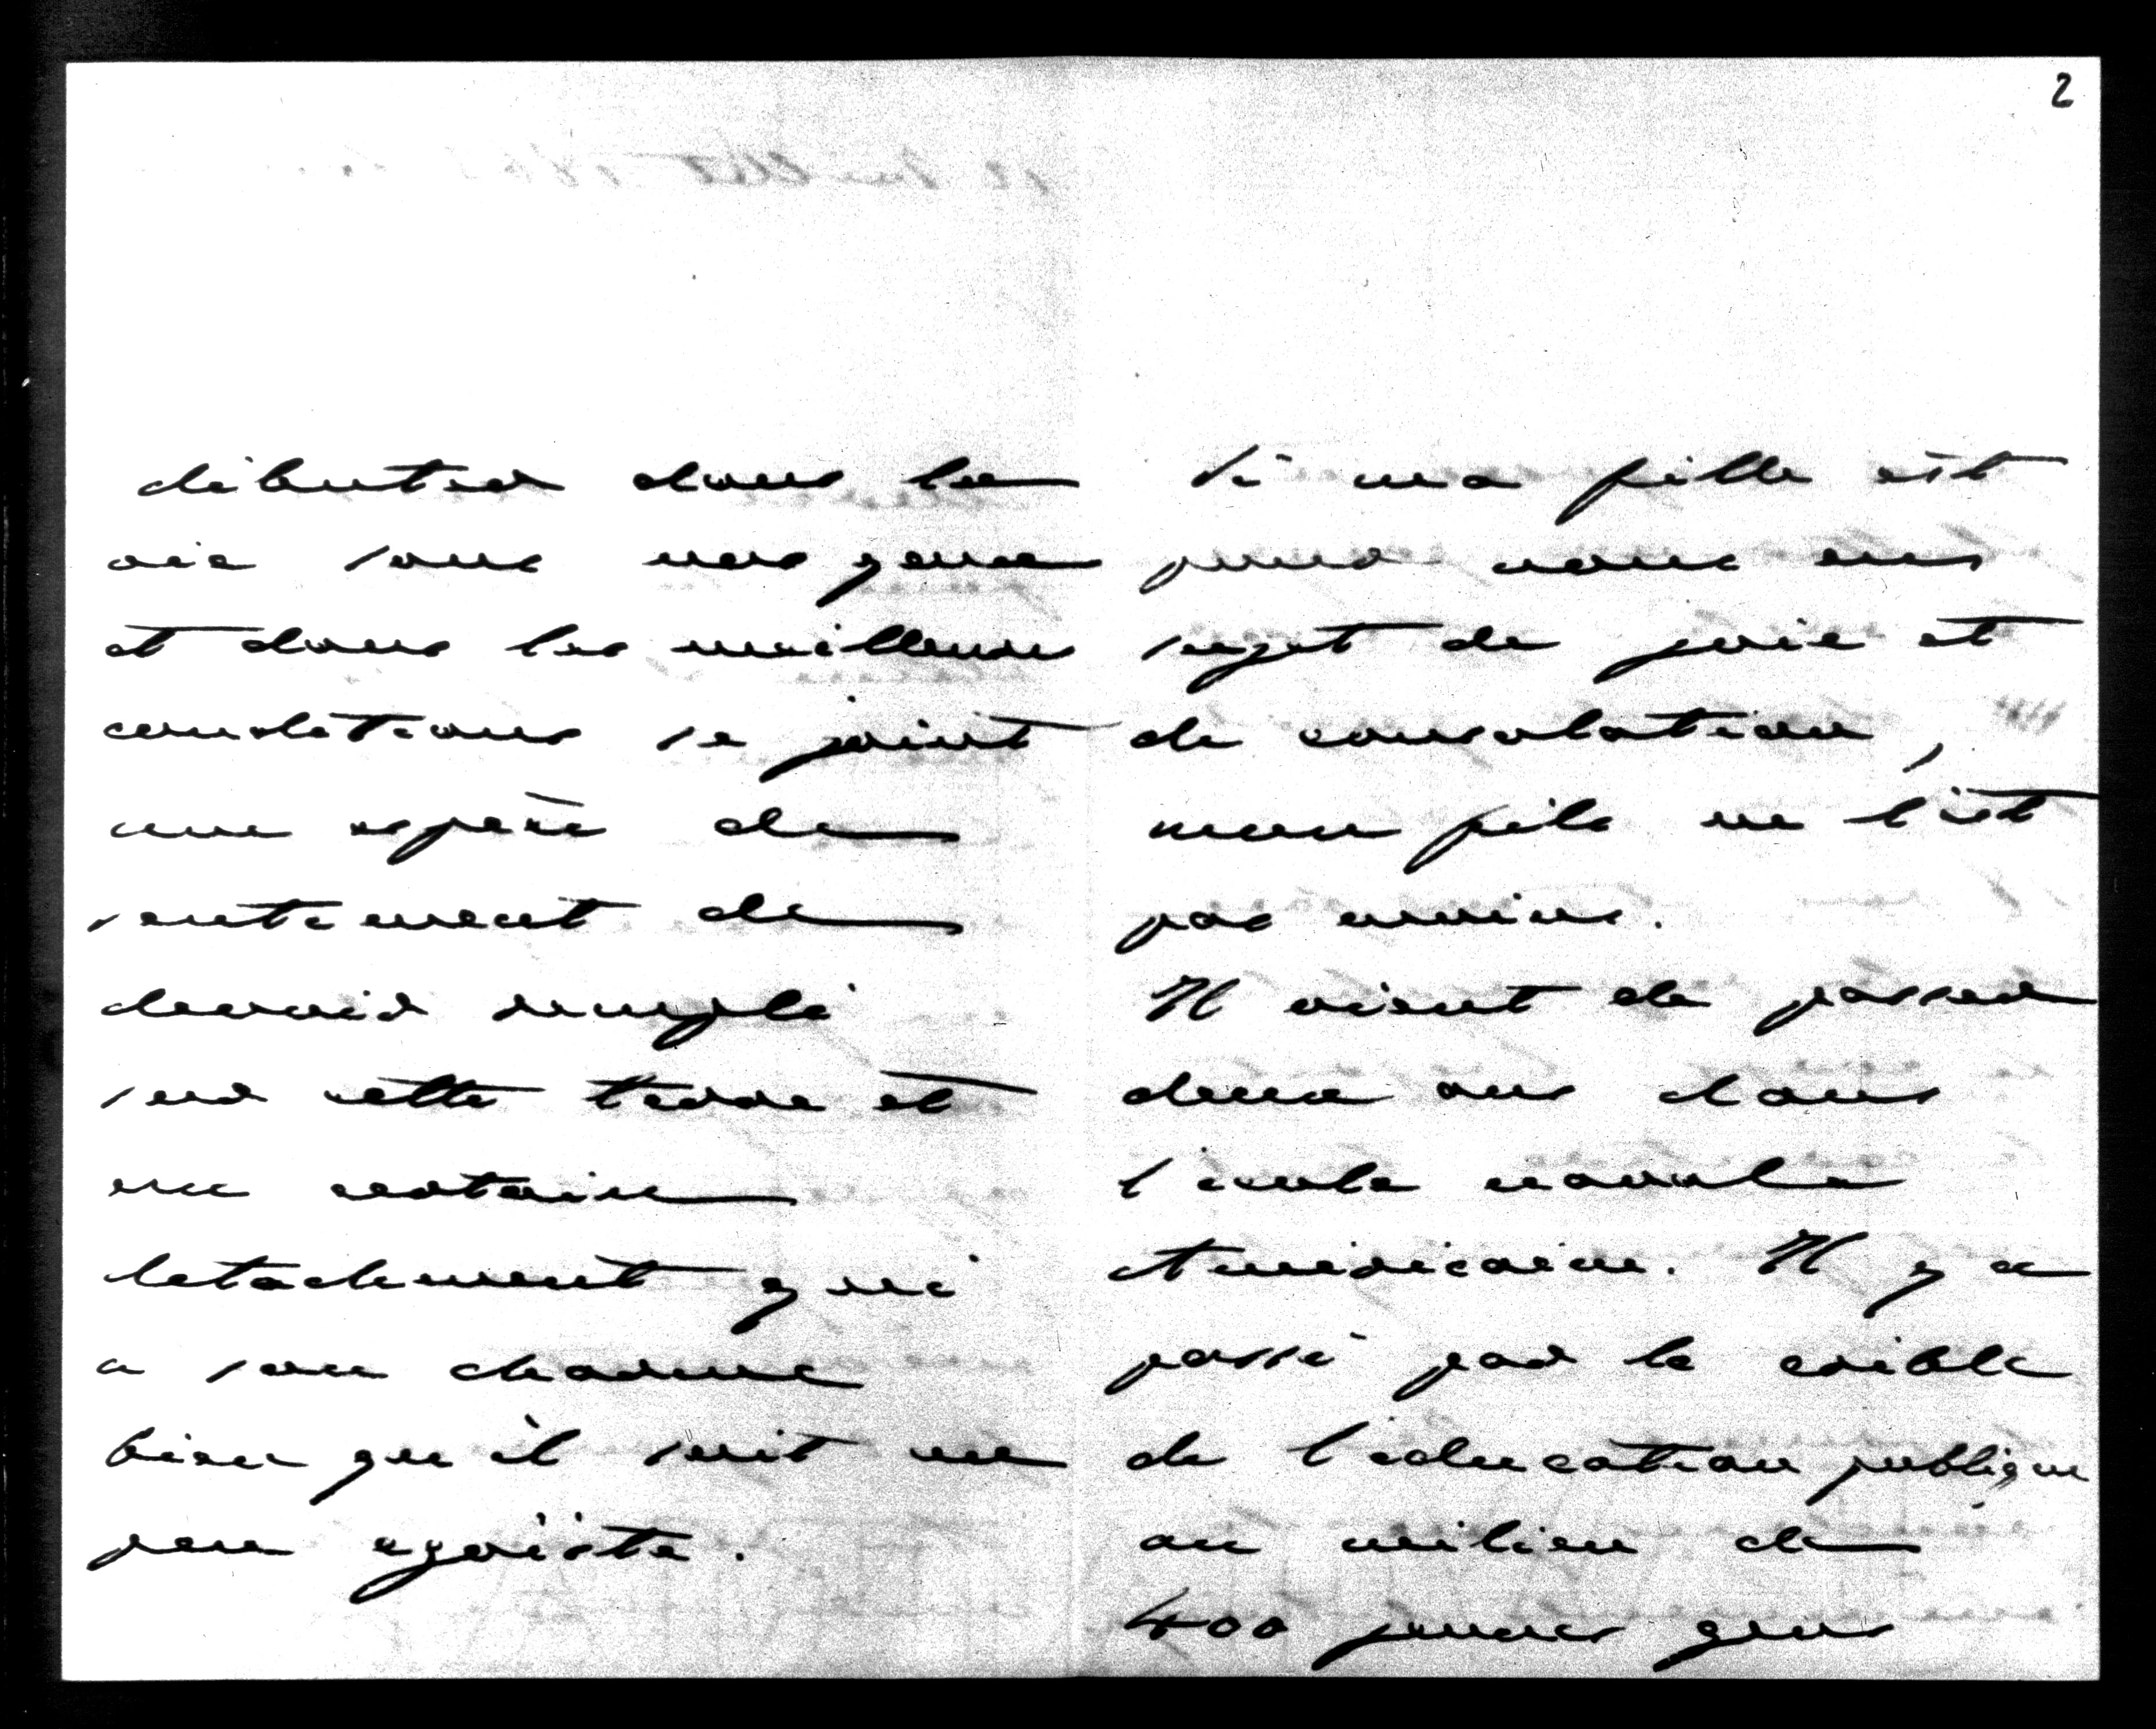 2
débuter dans la
vie sous nos yeux
et dans les meilleures
conditions se joint
une espèce de
sentiment de
devoir rempli
sur cette terre et
un certain
detachement qui
a son charme
bien qu'il soit un
peu egoïste.
Si ma fille est
pour nous un
sujet de joie et
de consolation,
mon fils ne l'est
pas moins.
Il vient de passer
deux ans dans
l'école navale
Américaine. Il y a
passé par le crible
de l'éducation publique
au milieu de
400 jeunes gens